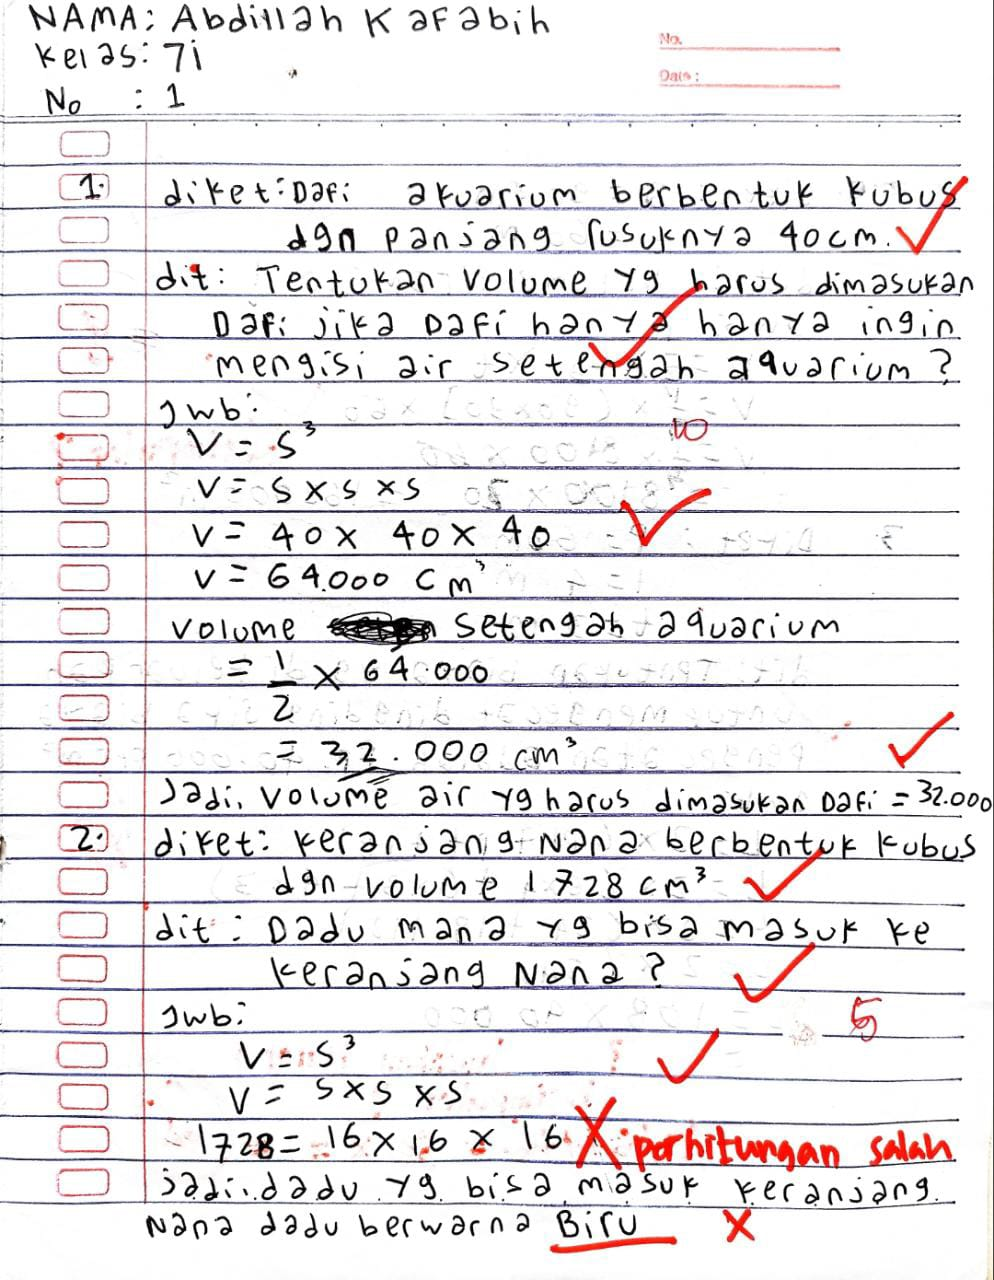 NAMA: Abdillah Kafabih
Kelas: 7i
No : 1
No.
Date:
1. diket: Dafi akuarium berbentuk kubus
dgn panjang rusuknya 40 cm.
dit: Tentukan volume yg harus dimasukan
Dafi jika Dafi hanya hanya ingin
mengisi air setengah aquarium?
Jwb:
V = S³
10
V = S x S x S
V = 40 x 40 x 40
V = 64.000 Cm³
volume setengah aquarium
= 1/2 x 64.000
= 32.000 cm³
Jadi, volume air yg harus dimasukan Dafi = 32.000
2. diket: keranjang Nana berbentuk kubus
dgn volume 1728 cm³
dit: Dadu mana yg bisa masuk ke
keranjang Nana?
Jwb:
5
V = S³
V = S x S x S
1728 = 16 x 16 x 16 perhitungan salah
jadi, dadu yg bisa masuk keranjang
Nana dadu berwarna Biru